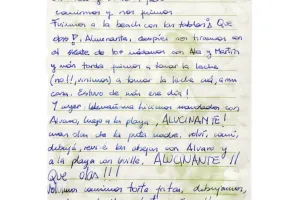 caminamos y nos fuimos
Fuimos a la beach con las tablas! Que
olas!, Alucinante, después nos tiramos en
el de los médanos con Ale y Martín
y más tarde fuimos a tomar la leche
(no!!, vinimos) a tomar la leche acá, a mi
casa. Estuvo de más ese día!
Y luego hicimos mandados con
Alvaro, luego a la playa, ALUCINANTE!
unas olas de la puta madre, volví, comí,
dibujé, con Alvaro y
a la playa con Guille, ALUCINANTE!!
Que olas!!!
comimos torta fritas, dibujamos,